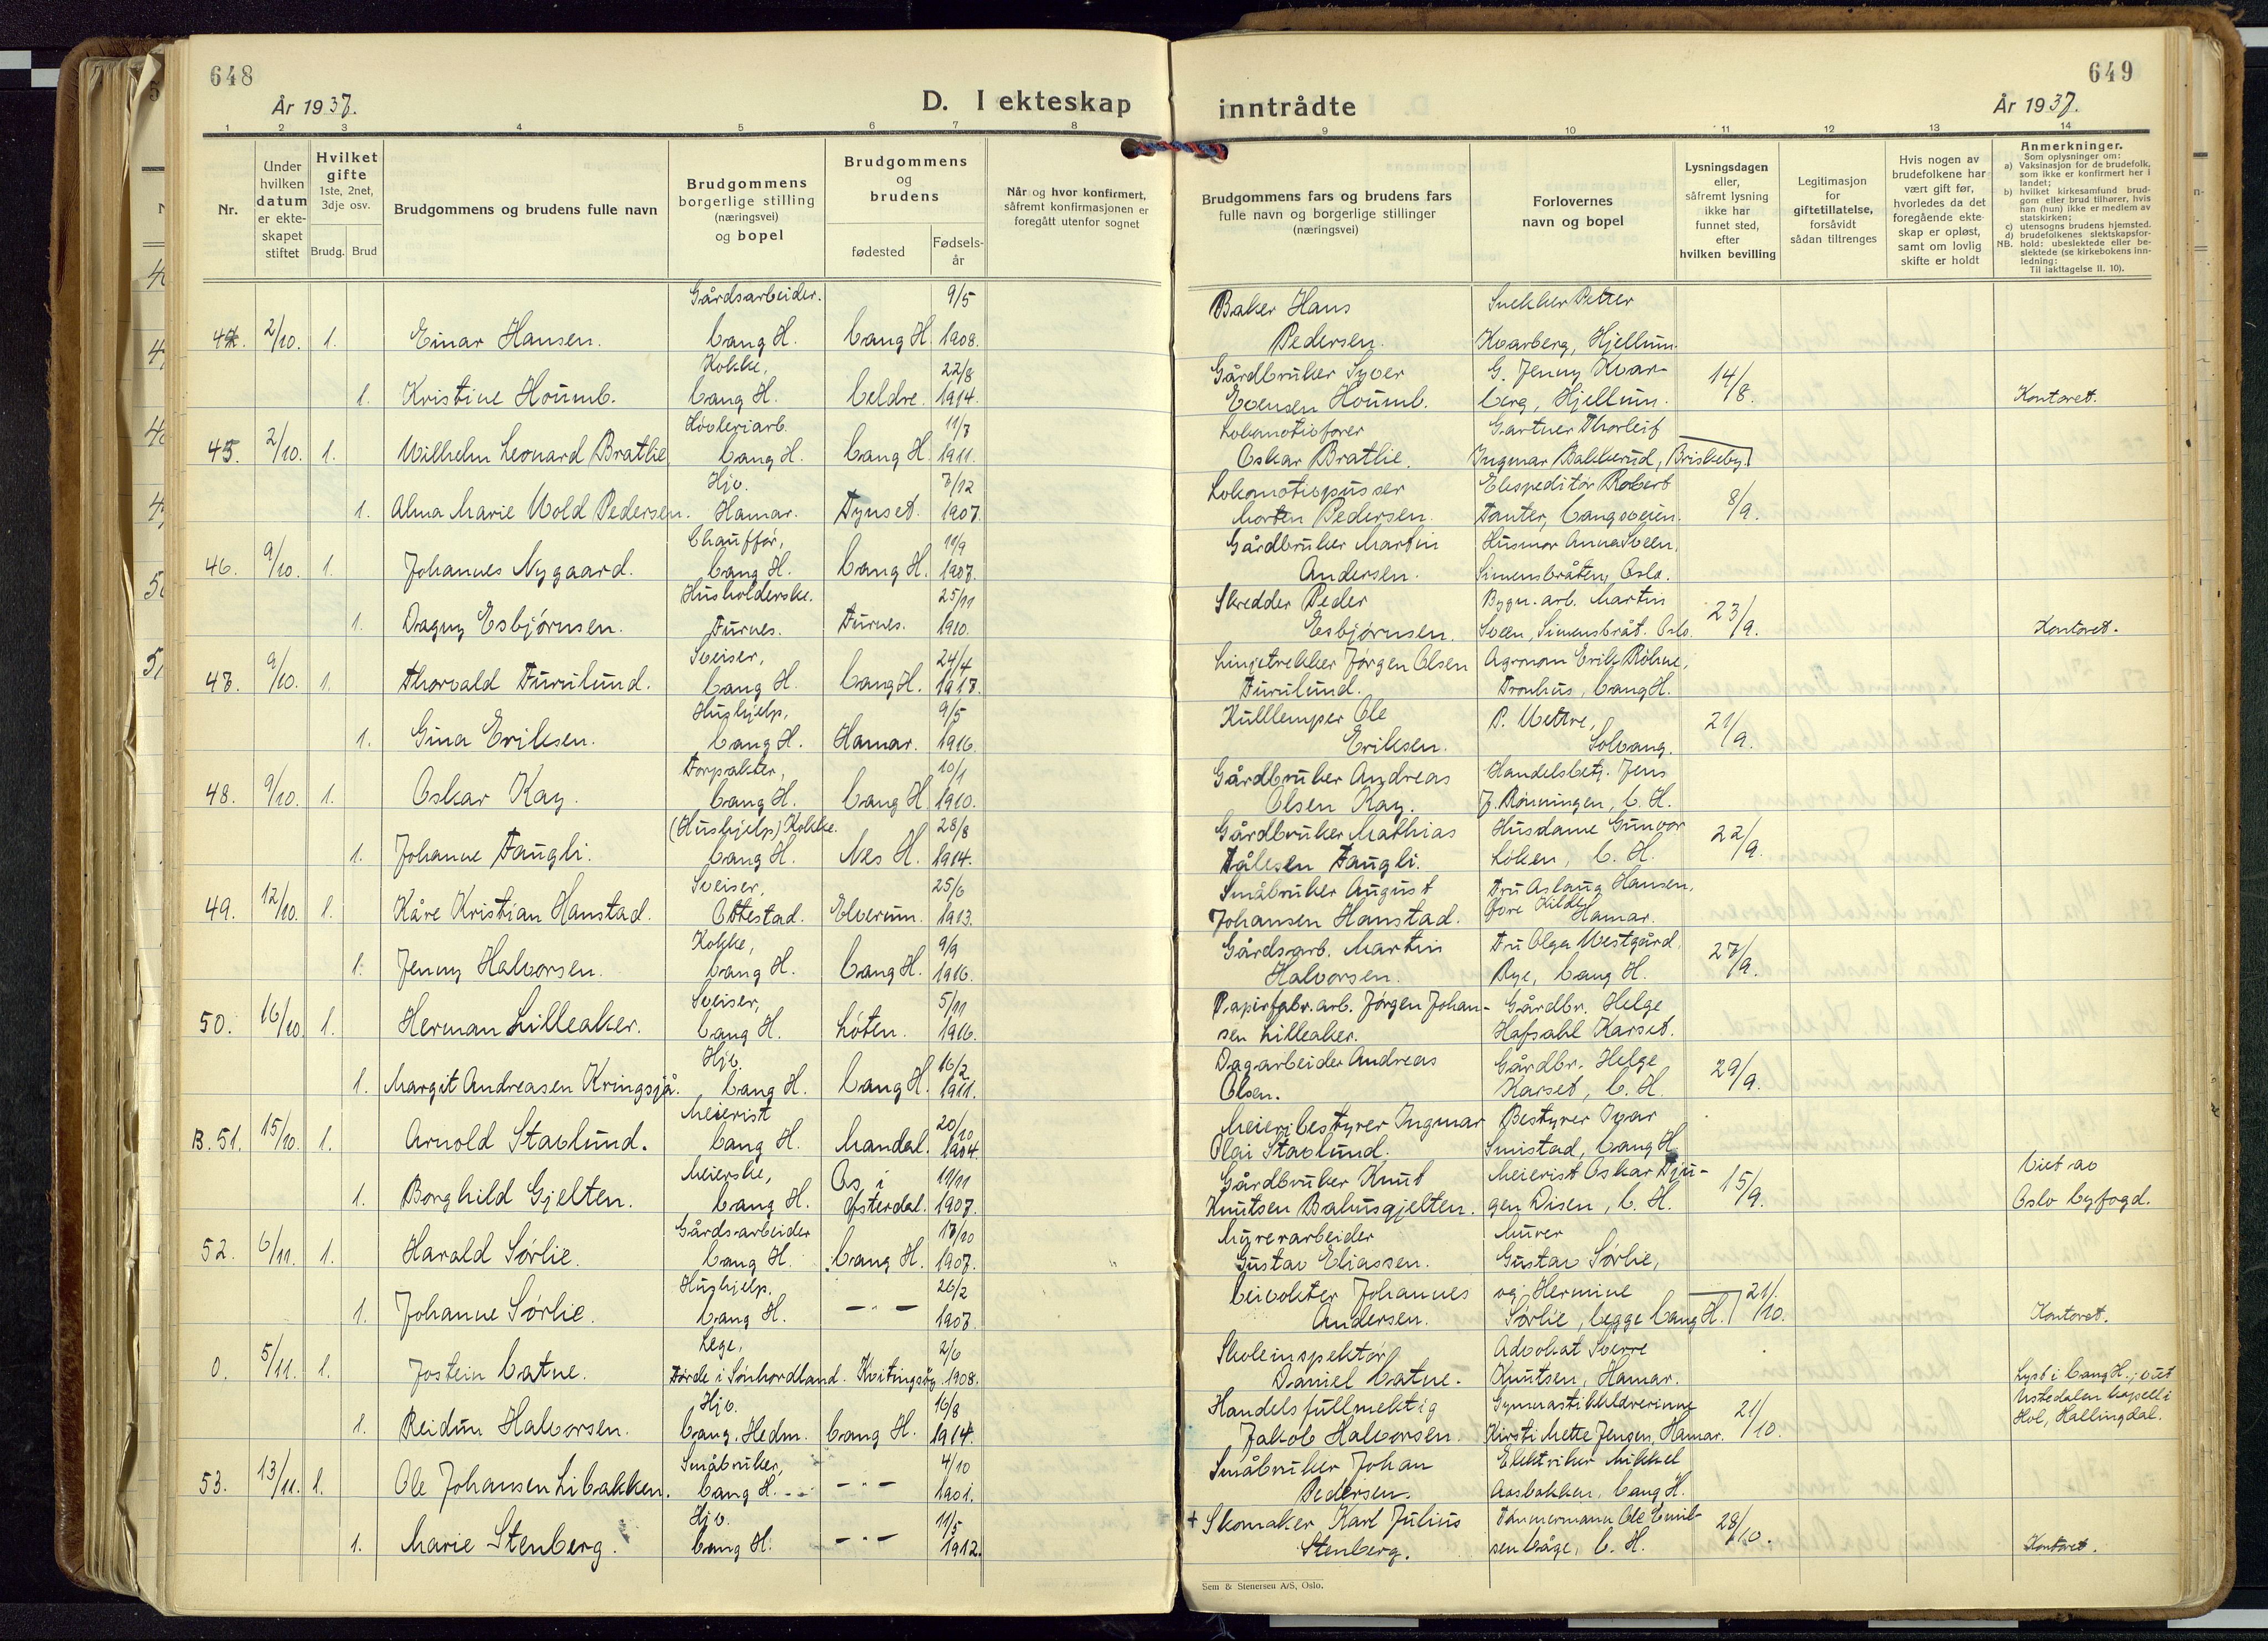 648
År 1937.
D. I ekteskap
1 2 3 4 5 6 7 8
Nr.
Under hvilken datum er ekteskapet stiftet
Hvilket gifte 1ste, 2net, 3dje osv.
Brudg. Brud
Brudgommens og brudens fulle navn
Brudgommens borgerlige stilling (næringsvei) og bopel
Brudgommens og brudens
fødested
Fødselsår
Når og hvor konfirmert, såfremt konfirmasjonen er foregått utenfor sognet
Gårdsarbeider. 9/5
44. 2/10. 1. Einar Hansen. Vang H. Vang H. 1908.
Kokke, 22/8
1. Kristine Houmb. Vang H. Veldre. 1914.
Høvleriarb. 11/7
45. 2/10. 1. Vilhelm Leonard Bratlie Vang H. Vang H. 1911.
Hjv. 7/12
1. Alma Marie Vold Pedersen. Hamar. Tynset. 1907.
Chauffør, 11/9
46. 9/10. 1. Johannes Nygaard. Vang H. Vang H. 1907.
Husholderske. 25/11
1. Dagny Esbjørnsen. Furnes. Furnes. 1910.
Sveiser, 24/4
47. 9/10. 1. Thorvald Furulund. Vang H. Vang H. 1917.
Hushjelp, 9/5
1. Gina Eriksen. Vang H. Hamar. 1916.
Forpakter, 10/1
48. 9/10. 1. Oskar Kay. Vang H. Vang H. 1910.
(Hushjelp) Kokke. 28/8
1. Johanne Faugli. Vang H. Nes H. 1914.
Sveiser, 25/6
49. 12/10. 1. Kåre Kristian Hanstad. Ottestad. Elverum. 1913.
Kokke, 9/9
1. Jenny Halvorsen. Vang H. Vang H. 1916.
Sveiser, 5/11
50. 16/10. 1. Herman Lilleaker. Vang H. Løten. 1916.
Hjv. 16/2
1. Margit Andreasen Kringsjå. Vang H. Vang H. 1911.
Meierist 20/10
B. 51. 15/10. 1. Arnold Stavlund. Vang H. Mandal. 1904.
Meierske, Os, i 11/11
1. Borghild Gjelten. Vang H. Østerdal. 1907.
Gårdsarbeider 17/10
52. 6/11. 1. Harald Sørlie. Vang H. Vang H. 1907.
Hushjelp. 26/2
1. Johanne Sørlie. Vang H. — " — 1907.
Lege, 2/6
0. 5/11. 1. Jostein Vatne. Førde i Sunhordland. Kvitingsøy. 1908.
Hjv. 16/8
1. Reidun Halvorsen. Vang. Hedm. Vang H. 1914.
Småbruker, 4/10
53. 13/11. 1. Ole Johansen Libakken. Vang H. — " — 1901.
Hjv. 11/5
1. Marie Stenberg. Vang H. — " — 1912.
649
År 1937.
inntrådte
9 10 11 12 13 14
Brudgommens fars og brudens fars fulle navn og borgerlige stillinger (næringsvei)
Forlovernes navn og bopel
Lysningsdagen eller, såfremt lysning ikke har funnet sted, efter hvilken bevilling
Legitimasjon for giftetillatelse, forsåvidt sådan tiltrenges
Hvis nogen av brudefolkene har vært gift før, hvorledes da det foregående ekteskap er opløst, samt om lovlig skifte er holdt
Anmerkninger.
Som oplysninger om:
a) Vaksinasjon for de brudefolk, som ikke er konfirmert her i landet;
b) hvilket kirkesamfund brudgom eller brud tilhører, hvis han (hun) ikke er medlem av statskirken;
c) utensogns brudens hjemsted.
d) brudefolkenes slektskapsforhold: ubeslektede eller beslektede (se kirkebokens innledning:
NB. Til iakttagelse II. 10).
Baker Hans Snekker Petter
Pedersen. Kvarberg, Hjellum.
Gårdbruker Syver G. Jenny Kvar-
Evensen Houmb. berg, Hjellum. 14/8. Kontoret.
Lokomotivfører Gartner Thorleif
Oskar Bratlie. Ingmar Bakkerud, Briskeby.
Lokomotivpusser Ekspeditør Robert
Morten Pedersen. Fanter, Vangsveien. 8/9.
Gårdbruker Martin Husmor Anna Sveen,
Andersen. Simensbråten, Oslo.
Skredder Peder Bygn. arb. Martin
Esbjørnsen. Sveen, Simensbråt. Oslo. 23/9. Kontoret.
Linjetrekker Jørgen Olsen Agronom Erik Röhne,
Furulund. Fronhus, Vang H.
Kullemper Ole P. Vettre,
Eriksen. Solvang. 21/9.
Gårdbruker Andreas Handelsbetj. Jens
Olsen Kay. J. Rønningen, V. H.
Gårdbruker Mathias Husdame Gunvor
Tålesen Faugli. Løken, V. H. 22/9.
Småbruker August Fru Aslaug Hansen,
Johansen Hanstad. Øvre Kilde Hamar.
Gårdsarb. Martin Fru Olga Vestgård,
Halvorsen. Bye, Vang H. 27/9.
Papirfabr. arb. Jørgen Johan- Gårdbr. Helge
sen Lilleaker. Hafsahl Karset.
Dagarbeider Andreas Gårdbr. Helge
Olsen. Karset, V. H. 29/9.
Meieribestyrer Ingmar Bestyrer Ivar
Olai Stavlund. Smistad, Vang H.
Gårdbruker Knut Meierist Oskar Fju-
Knutsen Bakusgjelten. gen Disen, V. H. 15/9. Viet av Oslo byfogd.
Myrerarbeider Murer
Gustav Eliassen. Gustav Sørlie,
Veivokter Johannes og Hermine
Andersen. Sørlie, begge Vang H. 21/10. Kontoret.
Skoleinspektør Advokat Sverre
Daniel Vatne. Knutsen, Hamar.
Lyst i Vang H.; viet Ustedalen kapell i Hol, Hallingdal.
Handelsfullmektig Gymnastikklærerinne
Jakob Halvorsen. Kirsti Mette Jensen, Hamar. 21/10.
Småbruker Johan Elektriker Mikkel
Pedersen. Aasbakken, Vang H.
+ Skomaker Karl Julius Tømmermann Ole Emil-
Stenberg. sen Våge, V. H. 28/10. Kontoret.
Sem & Stenersen A/S, Oslo.